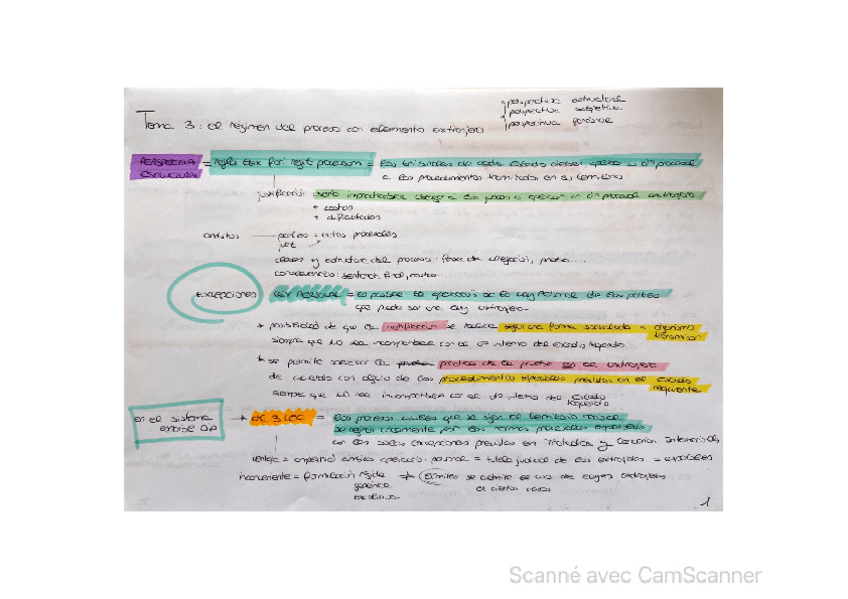 perspectiva estructural
perspectiva subjetiva
perspectiva
Tema 3: el régimen del proceso con elemento extranjero
PERSPECTIVA ESTRUCTURAL = regla lex fori regit processum = los tribunales de cada Estado deben aplicar su dº procesal
a los procedimientos tramitados en su territorio
justificación: sería obligar a los jueces a aplicar un dº procesal extranjero
+ costes
+ dificultades
ámbitos partes: actos procesales
clases y estructura del proceso: fase de alegación, prueba...
consecuencias: sentencia final, costas...
EXCEPCIONES LEX PERSONAL = es posible la aplicación de la ley personal de las partes
que puede ser una ley extranjera
+ posibilidad de que la notificación se realice según una forma solicitada x organismo transmisor
siempre que no sea incompatible con el dº interno del estado requerido
+ se permite practica de la prueba en el extranjero
de acuerdo con alguno de los procedimientos especiales previstos en el Estado requirente
siempre que no sea incompatible con el dº interno del Estado requerido
en el sistema español → art 3 LEC = Los procesos civiles que se sigan en territorio nacional
se regirán únicamente por las normas procesales españolas
con las solas excepciones previstas en Tratados y Convenios Internacionales
ventaja = ámbito aplicación personal = tutela judicial de los extranjeros = españoles
inconveniente = formulación rígida → límites se admite el uso de leyes extranjeras
genérica en ciertos casos
1
Scanné avec CamScanner